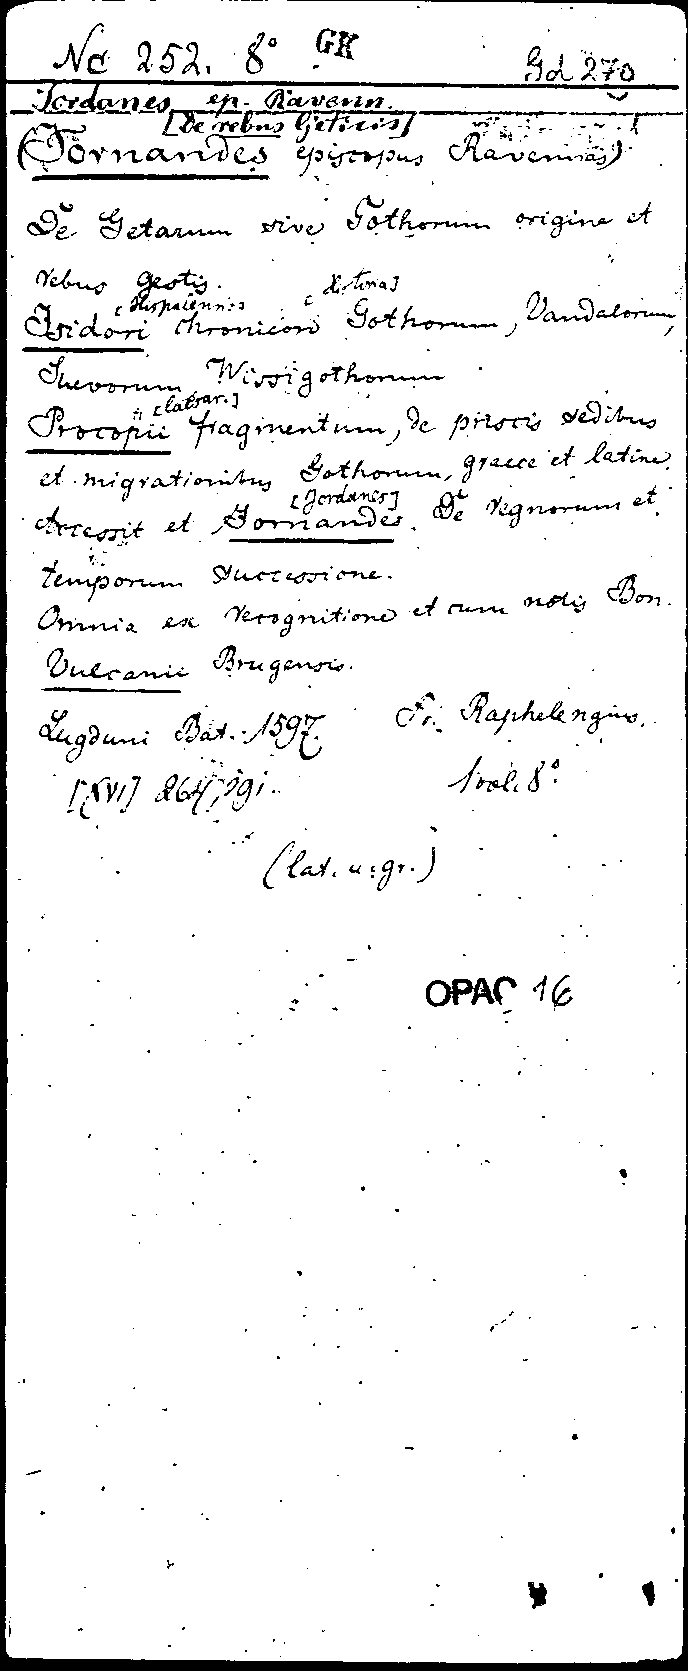 Nc 252. 8° GK Gd 270
Jordanes, ep. Ravenn.
[De rebus Geticis]
(Jornandes episcopus Ravennas)
De Getarum sive Gothorum origine et
rebus gestis.
[Hispaliensis [Historia]
Isidori chronicon Gothorum, Vandalorum,
Suevorum, Wissigothorum
[Caesar.]
Procopii fragmentum, de priscis sedibus
et migrationibus Gothorum, graece et latine.
[Jordanes]
Accessit et Jornandes. De regnorum et
temporum successione.
Omnia ex recognitione et cum notis Bon.
Vulcanii Brugensis.
Lugduni Bat. 1597. Fr. Raphelengius.
[XVI] 264, 1 vol. 8°.
(lat. u. gr.)
OPAC 16